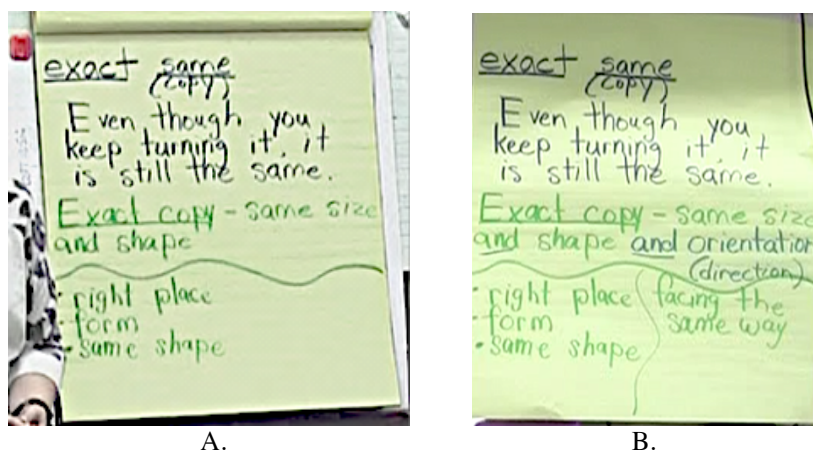 exact same
(copy)
Even though you
keep turning it, it
is still the same.
Exact copy - same size
and shape
• right place
• form
• same shape
A.
exact same
(copy)
Even though you
keep turning it, it
is still the same.
Exact copy - same size
and shape and orientation
(direction)
• right place
• form
• same shape
facing the
same way
B.